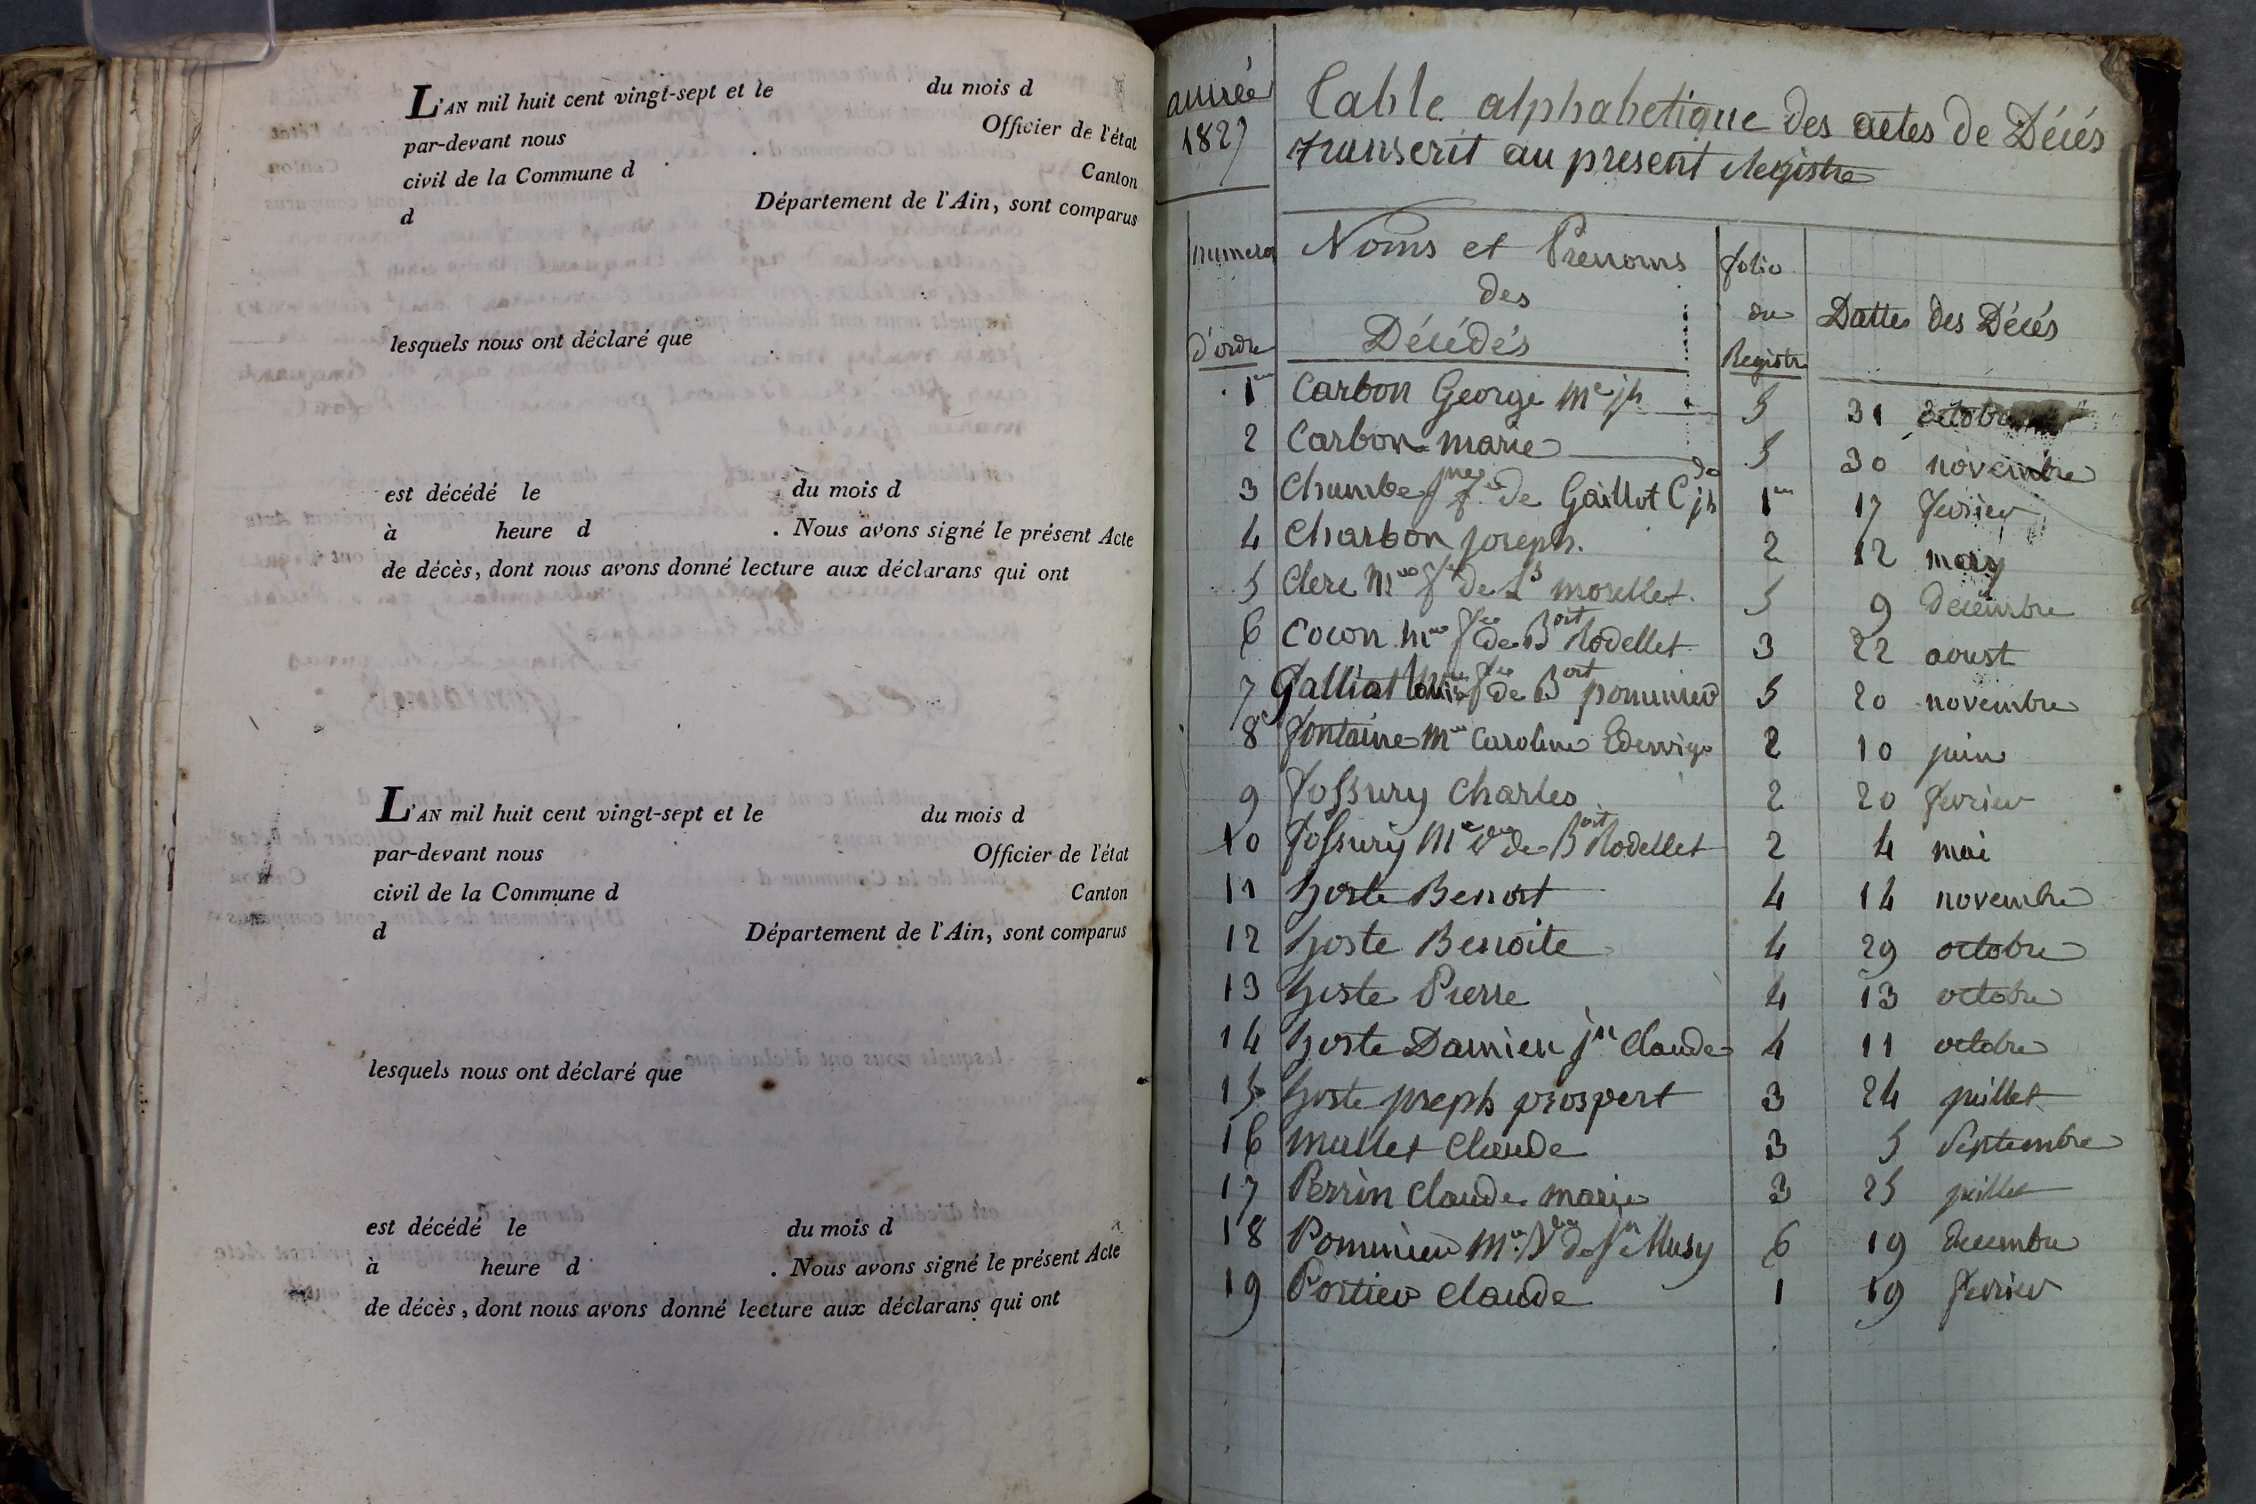 L'AN mil huit cent vingt-sept et le du mois d
par-devant nous Officier de l'état
civil de la Commune d Canton
d Département de l'Ain, sont comparus
lesquels nous ont déclaré que
est décédé le du mois d
à heure d . Nous avons signé le présent Acte
de décès, dont nous avons donné lecture aux déclarans qui ont
L'AN mil huit cent vingt-sept et le du mois d
par-devant nous Officier de l'état
civil de la Commune d Canton
d Département de l'Ain, sont comparus
lesquels nous ont déclaré que
est décédé le du mois d
à heure d . Nous avons signé le présent Acte
de décès, dont nous avons donné lecture aux déclarans qui ont
année
1827
Table alphabetique des actes de Décés
transcrit au present Registre
numero
d'ordre
Noms et Prenoms
des
Décédés
folio
du
Registre
Dattes des Décés
1er Carbon George Me jh 5 31 octobre
2 Carbon marie 5 30 novembre
3 de Gaillot Cde jh 1er 17 fevrier
4 Charbon joseph. 2 12 mars
5 Clerc Mie fe de Ls morellet. 5 9 decembre
6 Cocon Mie fe de Boit Rodellet 3 22 aoust
7 Galliat fe de Boit pommier 5 20 novembre
8 fontaine Mie Caroline Edewige 2 10 juin
9 fossury Charles 2 20 fevrier
10 fossury Mie Ve de Boit Rodellet 2 4 mai
11 hoste Benoit 4 14 novembre
12 hoste Benoite 4 29 octobre
13 hoste Pierre 4 13 octobre
14 hoste Damien jn Claude 4 11 octobre
15 hoste joseph prospert 3 24 juillet
16 mallet Claude 3 5 Septembre
17 Perrin Claude marie 3 25 juillet
18 Pommier Mie Ve de Musy 6 19 decembre
19 Portier Claude 1 19 fevrier